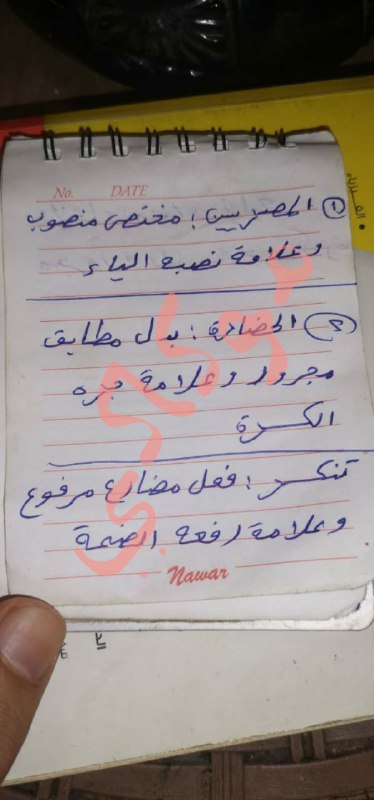 No. DATE
① المصريين : مختص منصوب
وعلامة نصبه الياء
② الحضارة : بدل مطابق
مجرور وعلامة جره
الكسرة
تنكسر : فعل مضارع مرفوع
وعلامة رفعه الضمة
Nawar